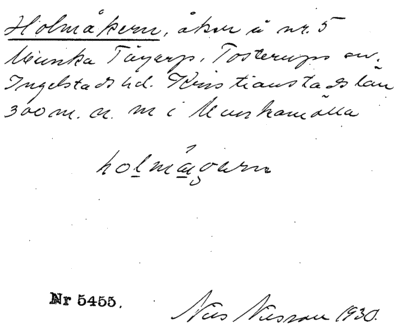 Holmåkern, åker å nr. 5
Munka Tågarp, Tosterups sn.
Ingelstads hd. Kristianstads län
300 m. n. m i Munkamölla
holmågarn
Nr 5455.
Nils Nilsson 1930.